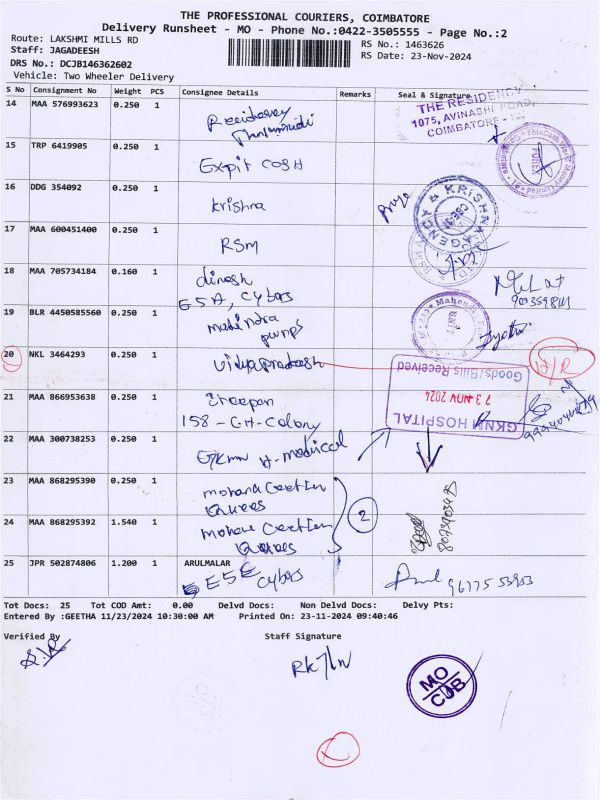 THE PROFESSIONAL COURIERS, COIMBATORE
Delivery Runsheet - MO - Phone No.:0422-3505555 - Page No.:2
Route: LAKSHMI MILLS RD
Staff: JAGADEESH
RS No.: 1463626
DRS No.: DCJB146362602
RS Date: 23-Nov-2024
Vehicle: Two Wheeler Delivery
S No Consignment No Weight PCS Consignee Details Remarks Seal & Signature
14 MAA 576993623 0.250 1 Residency
THE RESIDENCY
1075, AVINASHI ROAD,
COIMBATORE
15 TRP 6419905 0.250 1 Expit cash
16 DDG 354092 0.250 1 Krishna
KRISHNA AGENCY
17 MAA 600451400 0.250 1 RSM
18 MAA 705734184 0.160 1 dinesh
ESA, Cybers
19 BLR 4450585560 0.250 1 mahindra
pumps
20 NKL 3464293 0.250 1 Vidyaprakash
Goods/Bills Received
23 NOV 2024
GKNM HOSPITAL
21 MAA 866953638 0.250 1
158 - G.H. Colony
22 MAA 300738253 0.250 1 GKMN H-medical
23 MAA 868295390 0.250 1
2
24 MAA 868295392 1.540 1
25 JPR 502874806 1.200 1 ARULMALAR
ESE Cybers
96775 53953
Tot Docs: 25 Tot COD Amt: 0.00 Delvd Docs: Non Delvd Docs: Delvy Pts:
Entered By :GEETHA 11/23/2024 10:30:00 AM Printed On: 23-11-2024 09:40:46
Verified By Staff Signature
MO
CJB